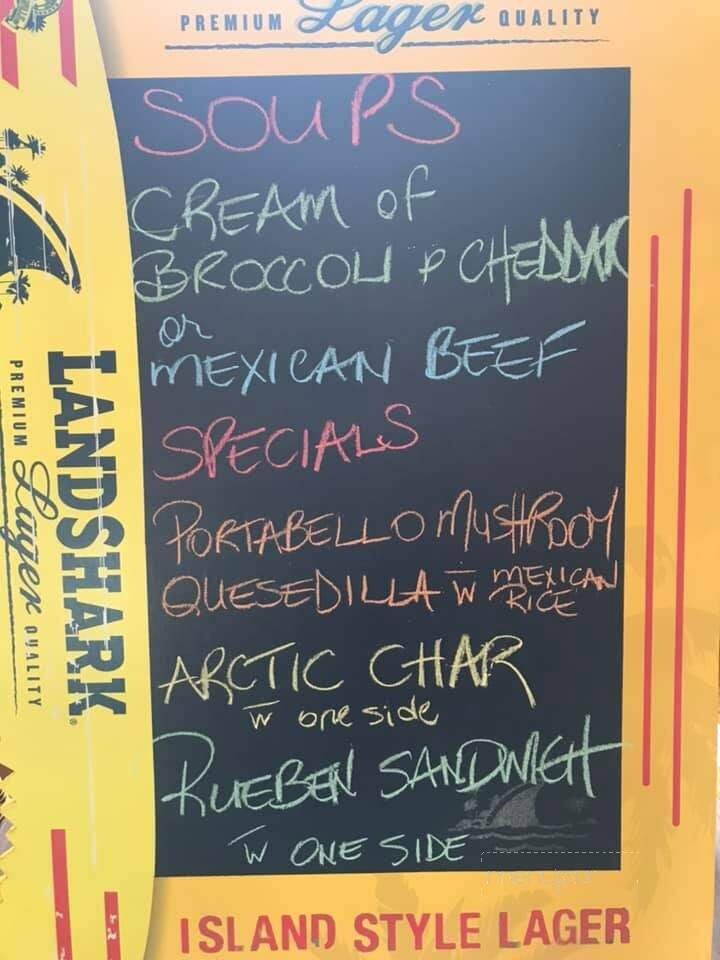 PREMIUM Lager QUALITY
SOUPS
CREAM of
BROCCOLI & CHEDDAR
or
MEXICAN BEEF
SPECIALS
PORTABELLO MUSHROOM
QUESEDILLA W MEXICAN
RICE
ARCTIC CHAR
W one side
RUEBEN SANDWICH
W ONE SIDE
ISLAND STYLE LAGER
LANDSHARK
PREMIUM Lager QUALITY